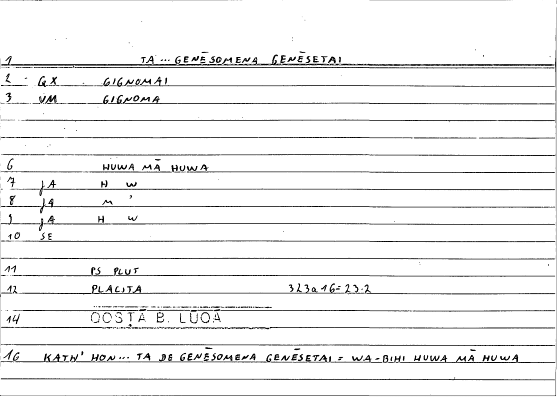 1 TA ... GENĒSOMENA GENĒSETAI
2 GX GIGNOMAI
3 VM GIGNOMA
6 HUWA MĀ HUWA
7 JA H W
8 JA M '
9 JA H W
10 SE
11 PS PLUT
12 PLACITA 323a16=23.2
14 QOSṬĀ B. LŪQĀ
16 KATH' HON ... TA DE GENĒSOMENA GENĒSETAI = WA-BIHI HUWA MĀ HUWA